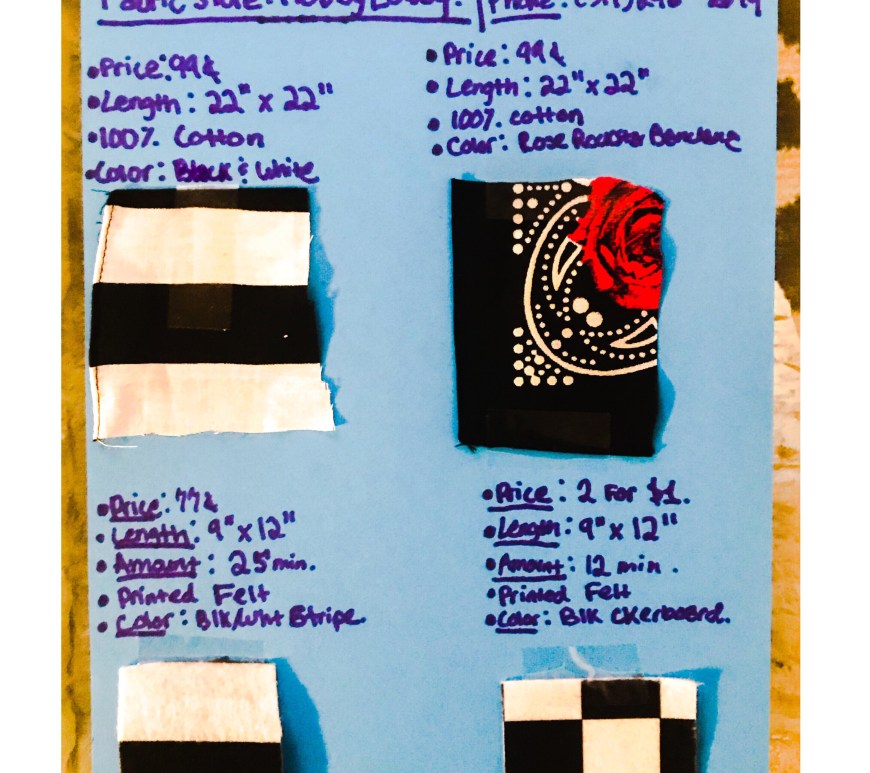 Fabric Store: Hobby Lobby. | Phone:
•Price: 99¢
•Length: 22" x 22"
•100% Cotton
•Color: Black & White
•Price: 99¢
•Length: 22" x 22"
•100% cotton
•Color: Rose Rockstar Bandana
•Price: 77¢
•Length: 9" x 12"
•Amount: 25 min.
•Printed Felt
•Color: Blk/Wht Stripe.
•Price: 2 For $1.
•Length: 9" x 12"
•Amount: 12 min.
•Printed Felt
•Color: Blk Ckerboard.